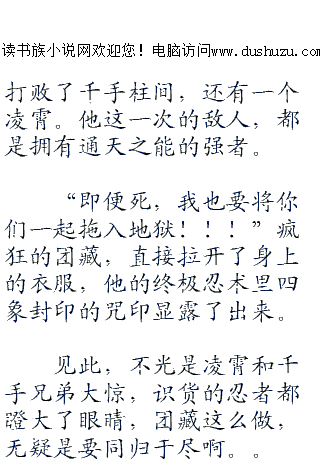 读书族小说网欢迎您！电脑访问www.dushuzu.com
打败了千手柱间，还有一个
凌霄。他这一次的敌人，都
是拥有通天之能的强者。
“即便死，我也要将你
们一起拖入地狱！！！”疯
狂的团藏，直接拉开了身上
的衣服，他的终极忍术里四
象封印的咒印显露了出来。
见此，不光是凌霄和千
手兄弟大惊，识货的忍者都
瞪大了眼睛，团藏这么做，
无疑是要同归于尽啊。。